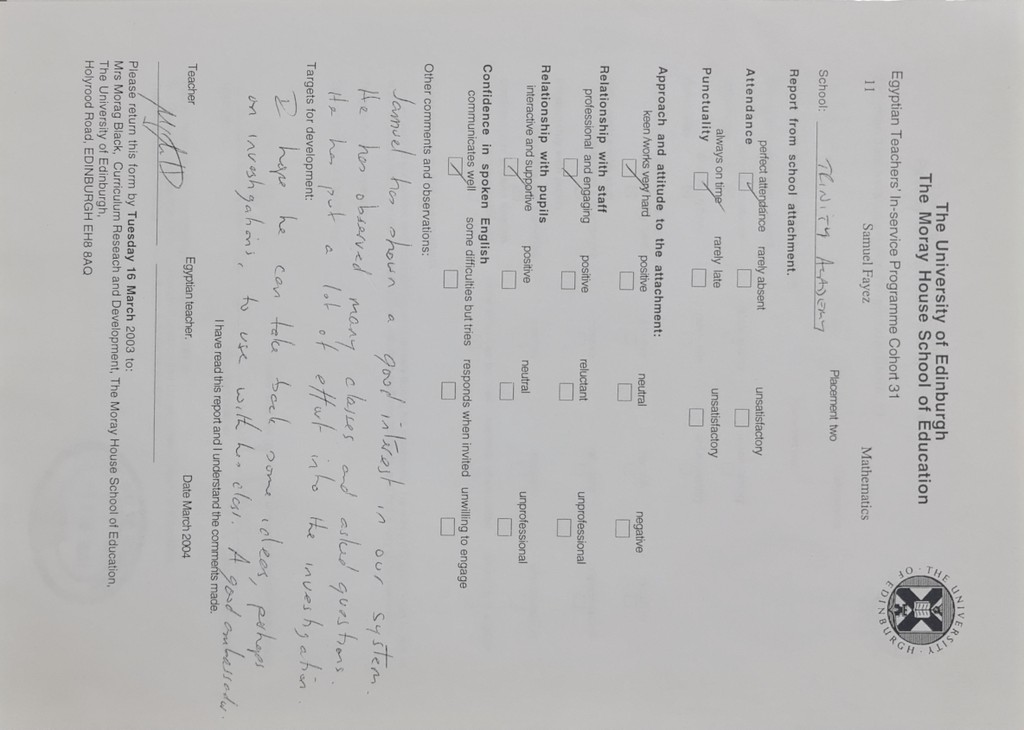 The University of Edinburgh
The Moray House School of Education
THE UNIVERSITY OF EDINBURGH
Egyptian Teachers' In-service Programme Cohort 31
11 Samuel Fayez Mathematics
School: TRINITY ACADEMY Placement two
Report from school attachment.
Attendance
perfect attendance rarely absent unsatisfactory
Punctuality
always on time rarely late unsatisfactory
Approach and attitude to the attachment:
keen /works very hard positive neutral negative
Relationship with staff
professional and engaging positive reluctant unprofessional
Relationship with pupils
interactive and supportive positive neutral unprofessional
Confidence in spoken English
communicates well some difficulties but tries responds when invited unwilling to engage
Other comments and observations:
Samuel has shown a good interest in our system.
He has observed many classes and asked questions.
He has put a lot of effort into the investigation.
Targets for development:
I hope he can take back some ideas, perhaps
on investigations, to use with his class. A good ambassador.
I have read this report and I understand the comments made.
Teacher Egyptian teacher. Date March 2004
Please return this form by Tuesday 16 March 2003 to:
Mrs Morag Black, Curriculum Reseach and Development, The Moray House School of Education,
The University of Edinburgh,
Holyrood Road, EDINBURGH EH8 8AQ